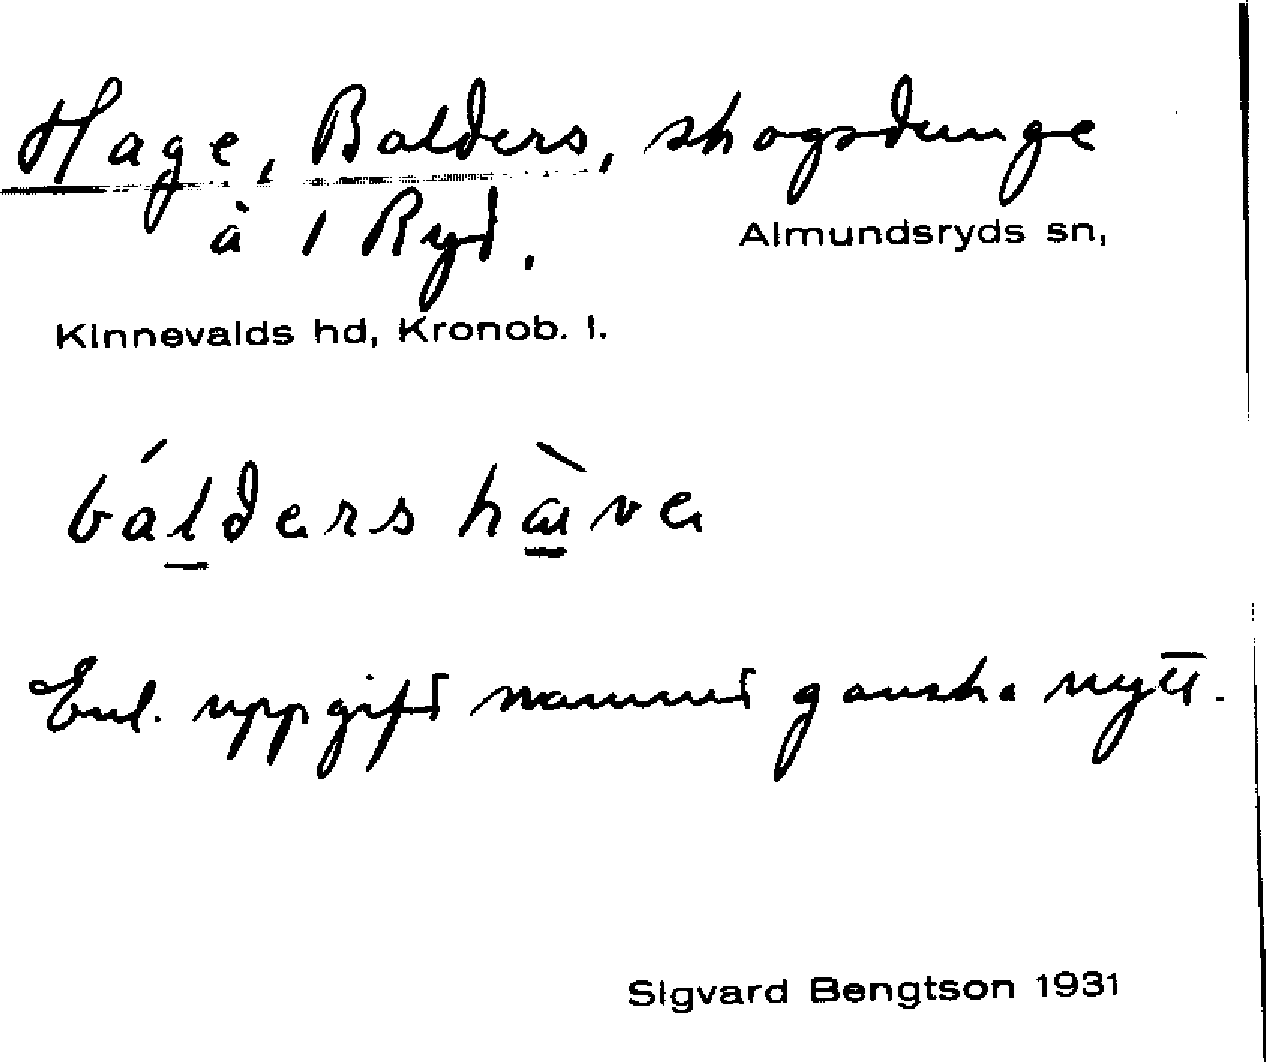 Hage, Balders, skogsdunge
à 1 Ryd.
Almundsryds sn,
Kinnevalds hd, Kronob. l.
bálders hàve
Enl. uppgift namnet ganska nytt.
Sigvard Bengtson 1931